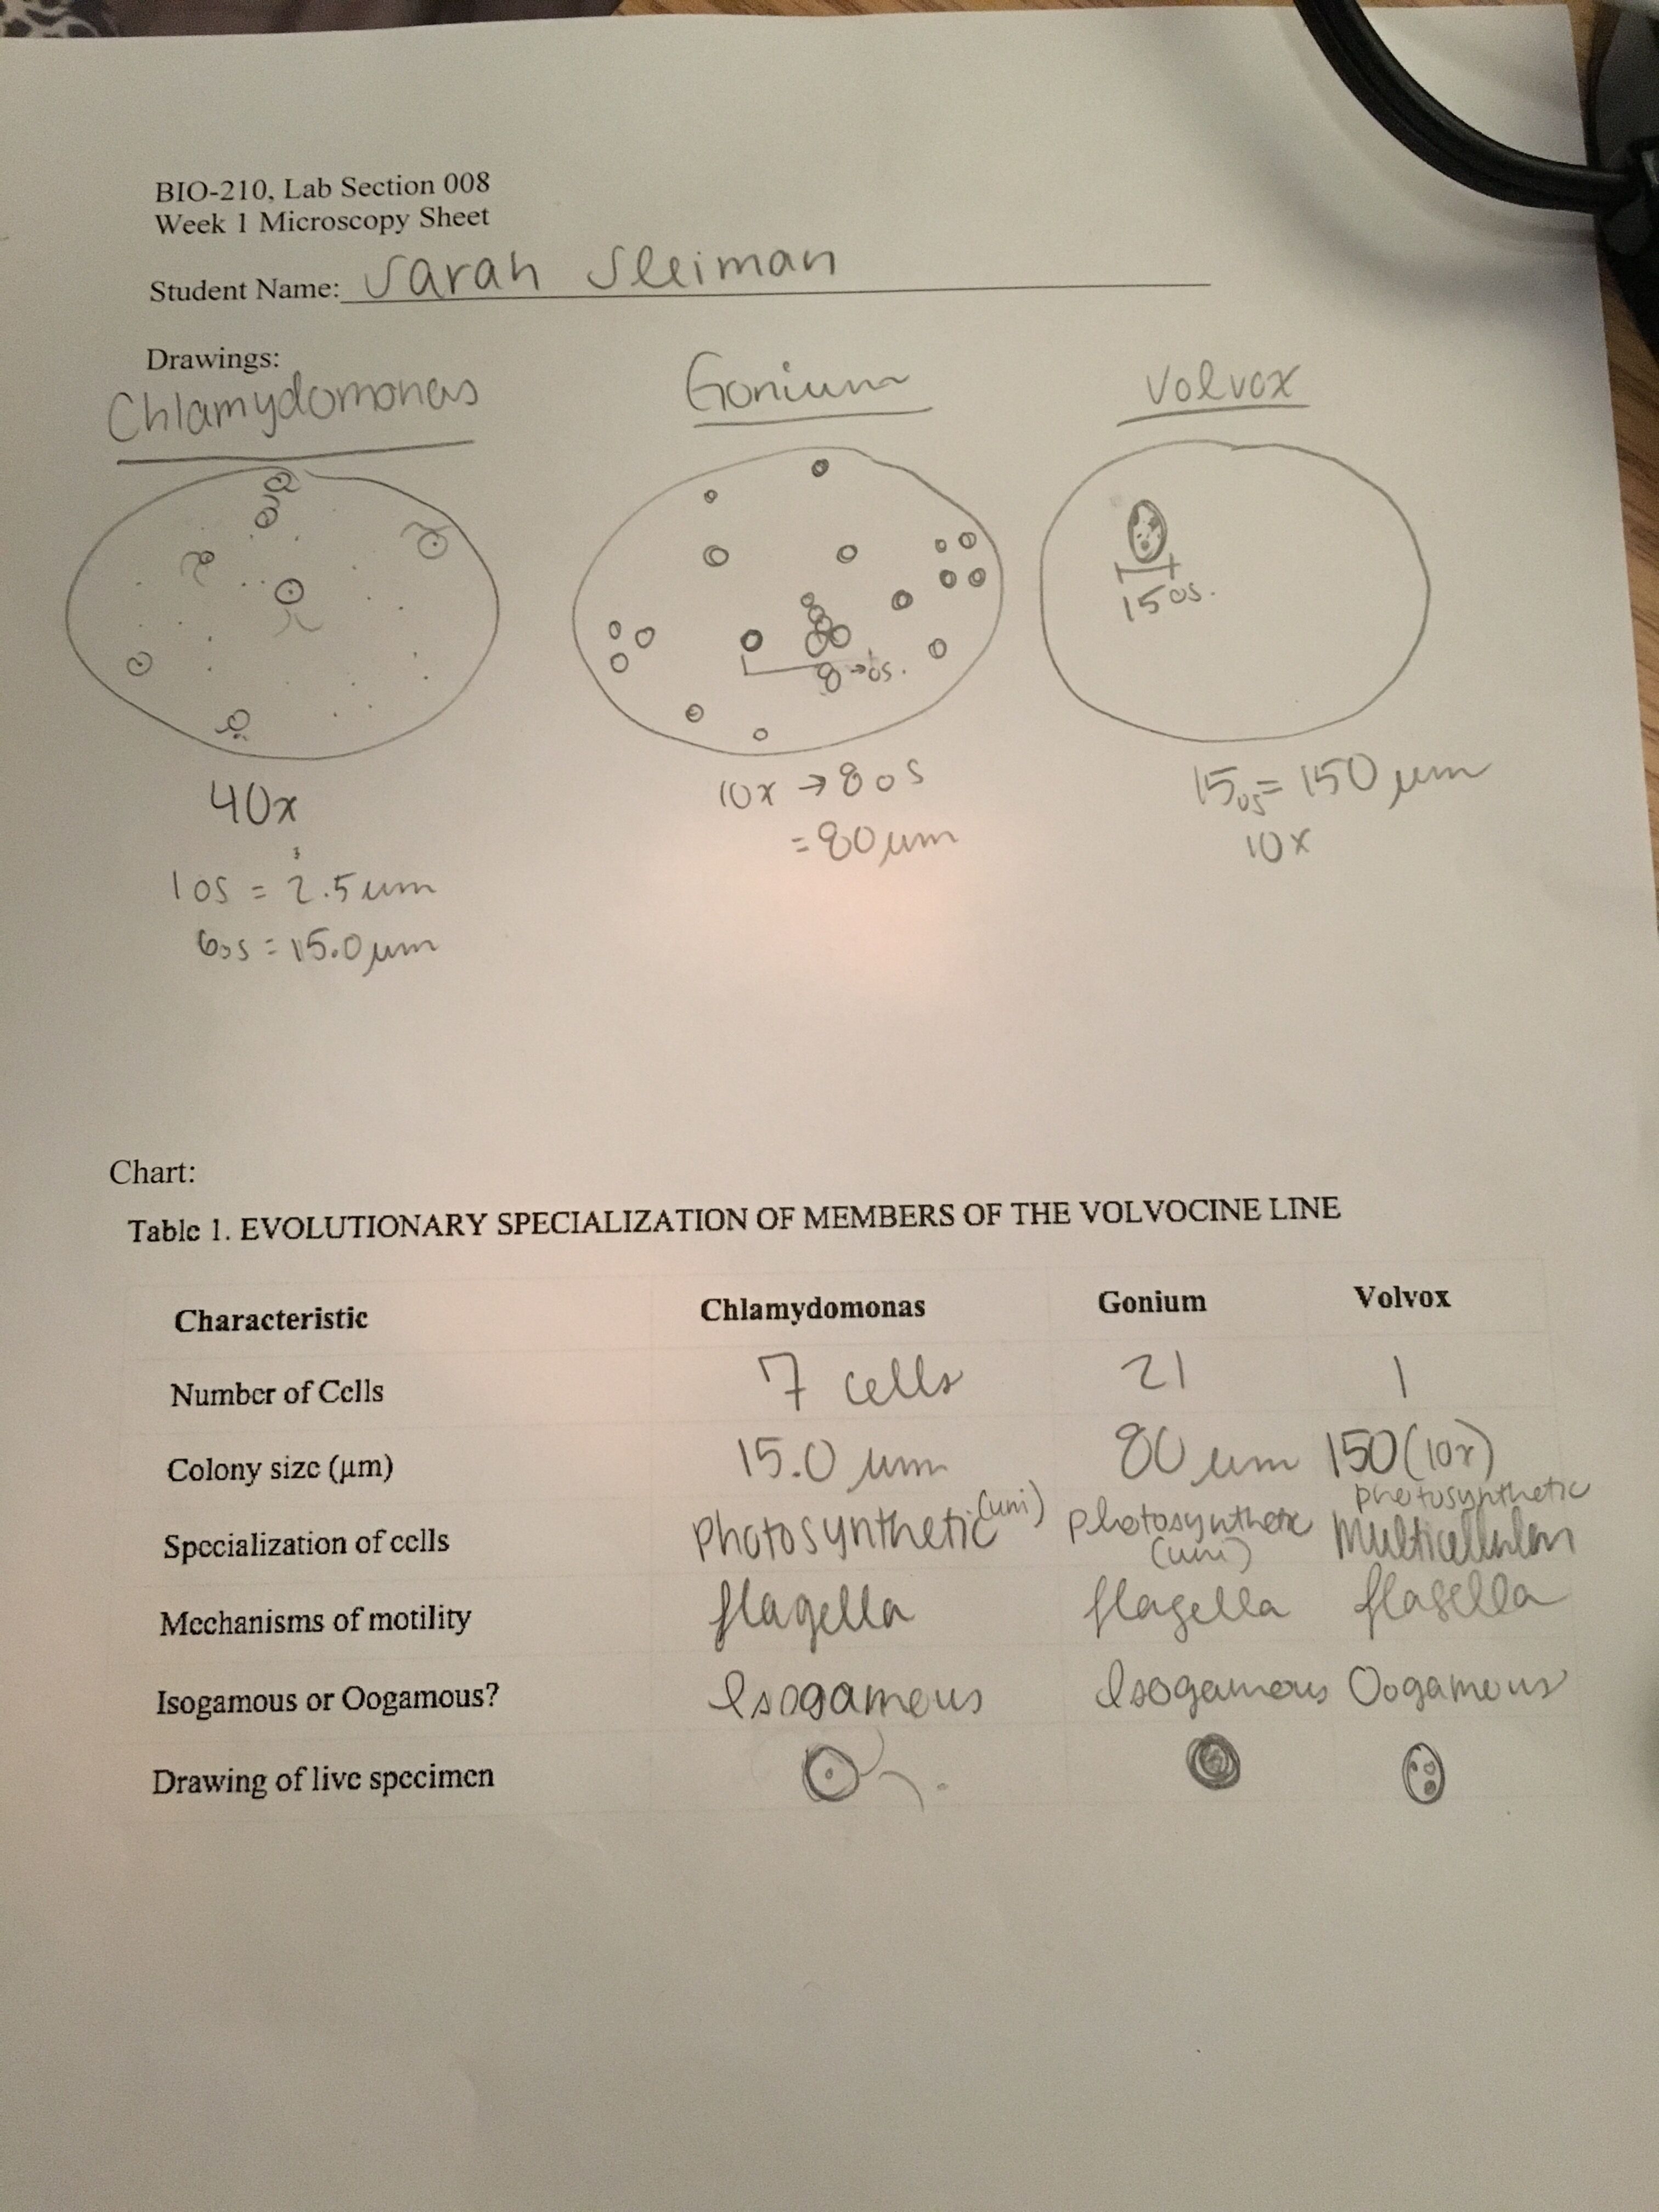 BIO-210, Lab Section 008
Week 1 Microscopy Sheet
Student Name: Sarah Sleiman
Drawings:
Chlamydomonas Gonium Volvox
15 os.
8 → os.
40x
10x → 8 os
= 80 µm
15 os = 150 µm
10x
1 os = 2.5 um
6os = 15.0 µm
Chart:
Table 1. EVOLUTIONARY SPECIALIZATION OF MEMBERS OF THE VOLVOCINE LINE
Characteristic Chlamydomonas Gonium Volvox
Number of Cells 7 cells 21 1
Colony size (µm) 15.0 µm 80 µm 150 (10x)
Specialization of cells photosynthetic (uni) photosynthetic (uni) photosynthetic multicellular
Mechanisms of motility flagella flagella flagella
Isogamous or Oogamous? Isogamous Isogamous Oogamous
Drawing of live specimen